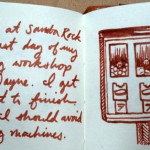 at Sandra Rock
st day of my
workshop
Jayne. I get
t to finish
I should avoid
g machines.